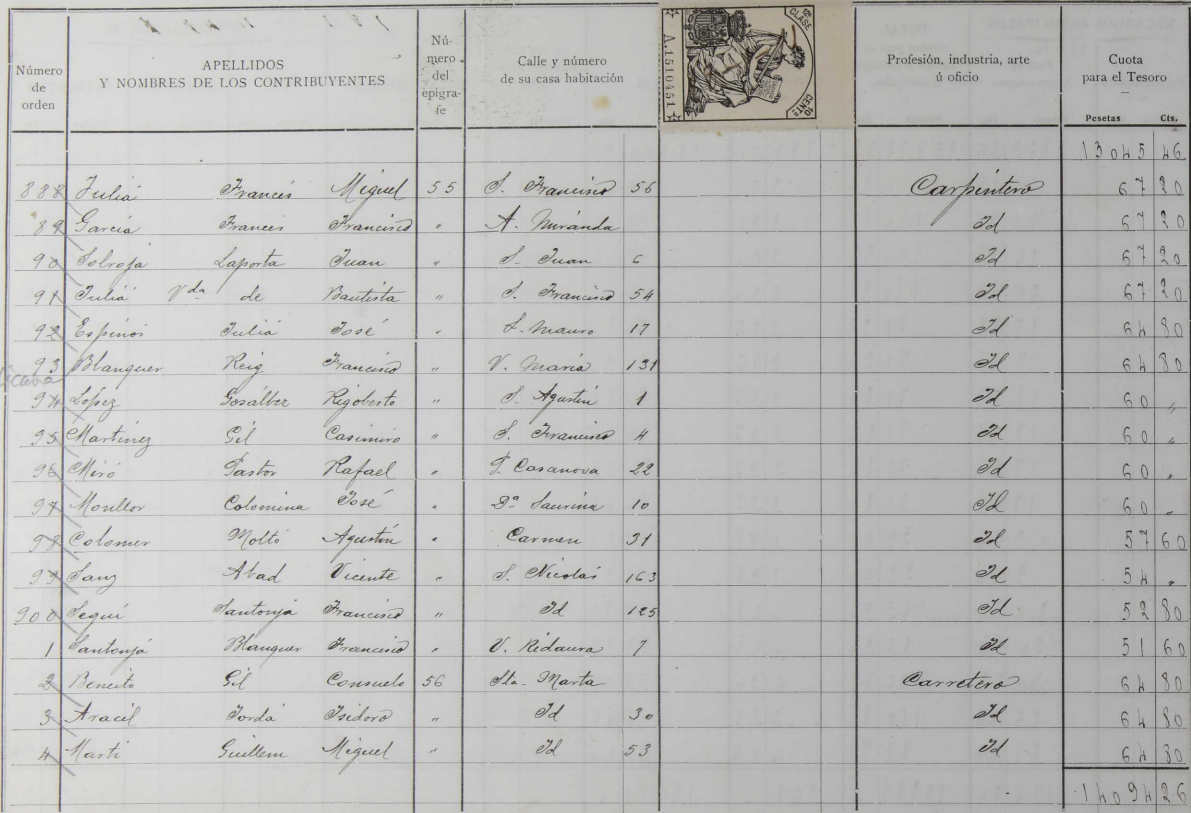 Número de orden
APELLIDOS Y NOMBRES DE LOS CONTRIBUYENTES
Número del epígrafe
Calle y número de su casa habitación
A.1.510.451
12ª CLASE
10 CENTS
Profesión, industria, arte ú oficio
Cuota para el Tesoro
Pesetas Cts.
13045 46
888 Juliá Francés Miguel 55 S. Francisco 56 Carpintero 67 20
89 García Frances Francisco " A. Miranda Id 67 20
90 Laporta Juan " S. Juan 6 Id 67 20
91 Juliá Vda de Bautista " S. Francisco 54 Id 67 20
92 Espinós Juliá José " S. Mauro 17 Id 64 80
93 Blanquer Reig Francisco " V. María 131 Id 64 80
94 López Gosálbez Rigoberto " S. Agustín 1 Id 60 "
95 Martínez Gil Casimiro " S. Francisco 4 Id 60 "
96 Miró Pastor Rafael " P. Casanova 22 Id 60 "
97 Monllor Colomina José " Dª Saurina 10 Id 60 "
98 Colomer Moltó Agustín " Carmen 31 Id 57 60
99 Sanz Abad Vicente " S. Nicolás 163 Id 54 "
900 Seguí Santonja Francisco " Id 125 Id 52 80
1 Santonja Blanquer Francisco " V. Ridaura 7 Id 51 60
2 Beneito Gil Consuelo 56 Sta. Marta Carretero 64 80
3 Aracil Jordá Isidoro " Id 30 Id 64 80
4 Martí Guillem Miguel " Id 53 Id 64 80
14094 26